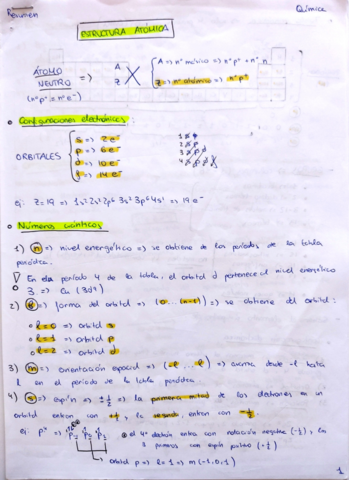 Resumen
Química
ESTRUCTURA ATÓMICA
ÁTOMO NEUTRO => A X Z
(nº p⁺ = nº e⁻)
A => nº másico => nº p⁺ + nº n
Z => nº atómico => nº p⁺
Configuraciones electrónicas
ORBITALES
s => 2e⁻
p => 6e⁻
d => 10e⁻
f => 14e⁻
1 s
2 s p
3 s p d
4 s p d f
ej: Z=19 => 1s² 2s² 2p⁶ 3s² 3p⁶ 4s¹ => 19 e⁻
Números cuánticos
1) n => nivel energético => se obtiene de los períodos de la tabla
periódica.
En el período 4 de la tabla, el orbital d pertenece al nivel energético
3 => Cu (3d⁹)
2) l => forma del orbital => (0...(n-1)) => se obtiene del orbital:
l=0 => orbital s
l=1 => orbital p
l=2 => orbital d
3) m => orientación espacial => (-l ... l) => avanza desde -l hasta
l en el período de la tabla periódica.
4) s => espín => ± 1/2 => la primera mitad de los electrones en un
orbital entran con +1/2, la segunda, entran con -1/2.
ej: p⁴ =>
el 4º electrón entra con notación negativa (-1/2), los
3 primeros con espín positivo (+1/2)
orbital p => l=1 => m (-1,0,1)
1